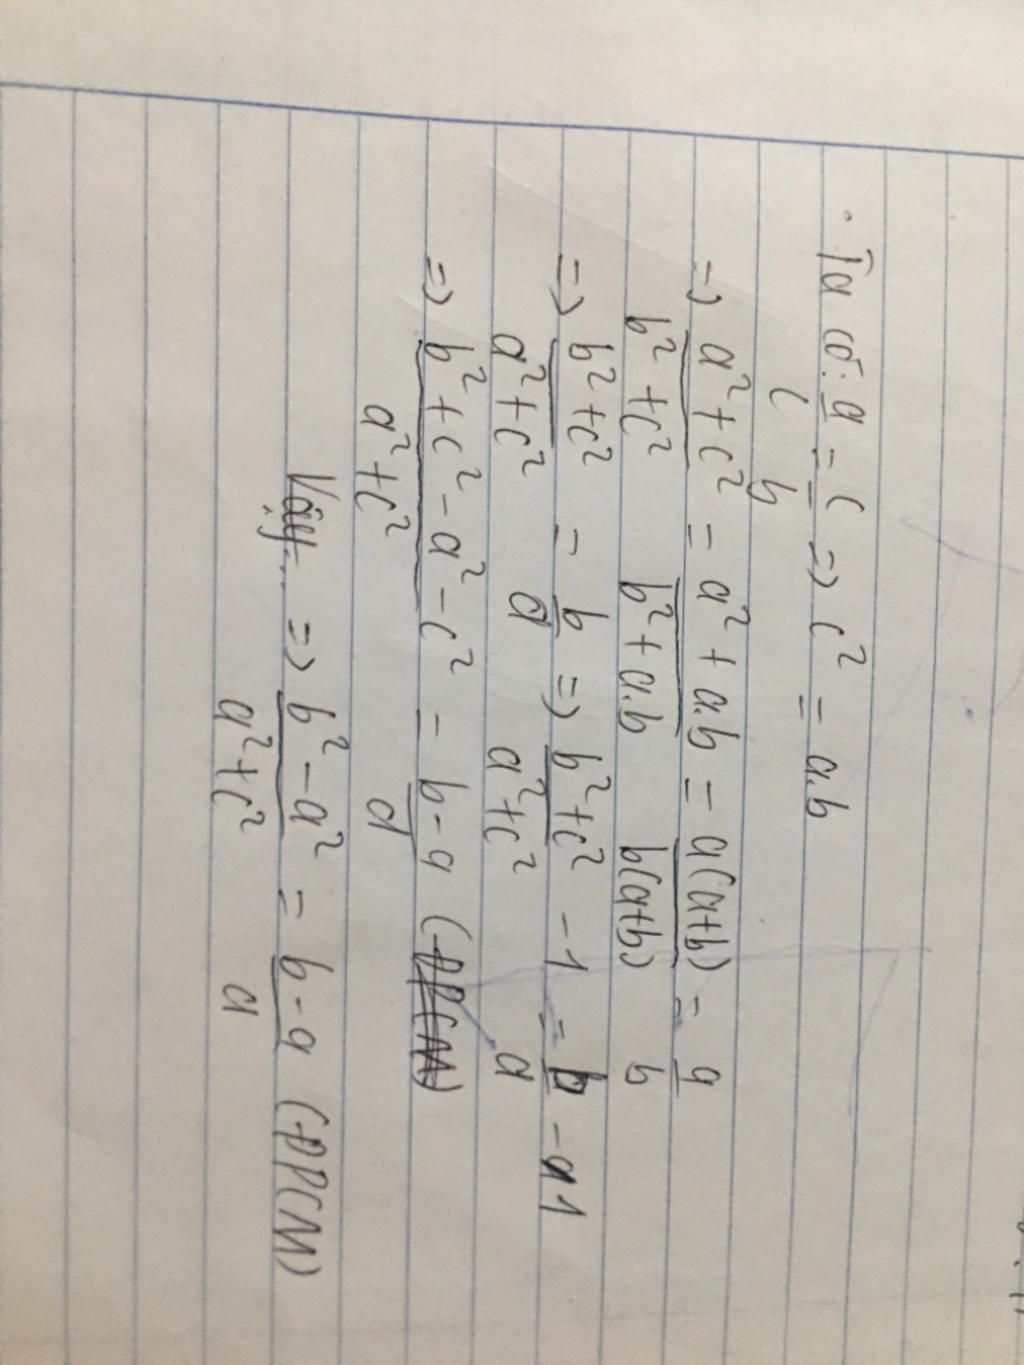 Ta có: a/c = c/b => c² = a.b
=> a²+c²/b²+c² = a²+a.b/b²+a.b = a(a+b)/b(a+b) = a/b
=> b²+c²/a²+c² = b/a => b²+c²/a²+c² - 1 = b/a - 1
=> b²+c²-a²-c²/a²+c² = b-a/a (ĐPCM)
Vậy... => b²-a²/a²+c² = b-a/a (ĐPCM)